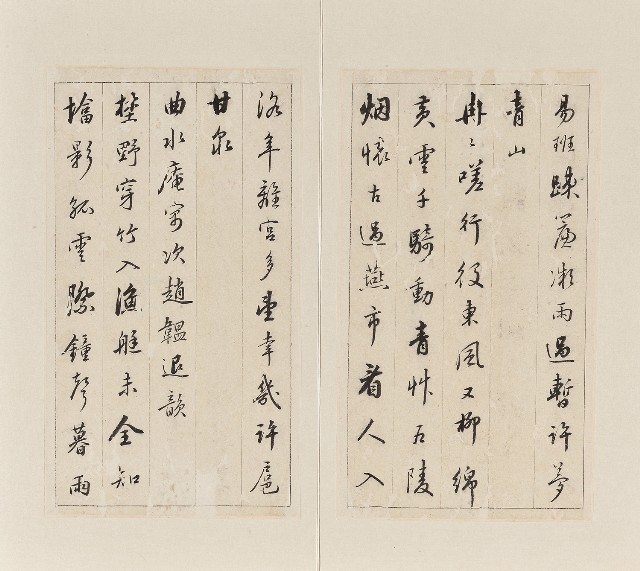 易班疎簾凝雨過暫許夢
青山
冉〻嗟行役東風又柳綿
黄雲千騎動青草五陵
烟懷古過燕市看人入
洛年離宫多望幸幾許扈
甘泉
曲水庵寓次趙韞退韻
埜野穿竹入漁艇未全知
墖影孤雲際鐘聲暮雨